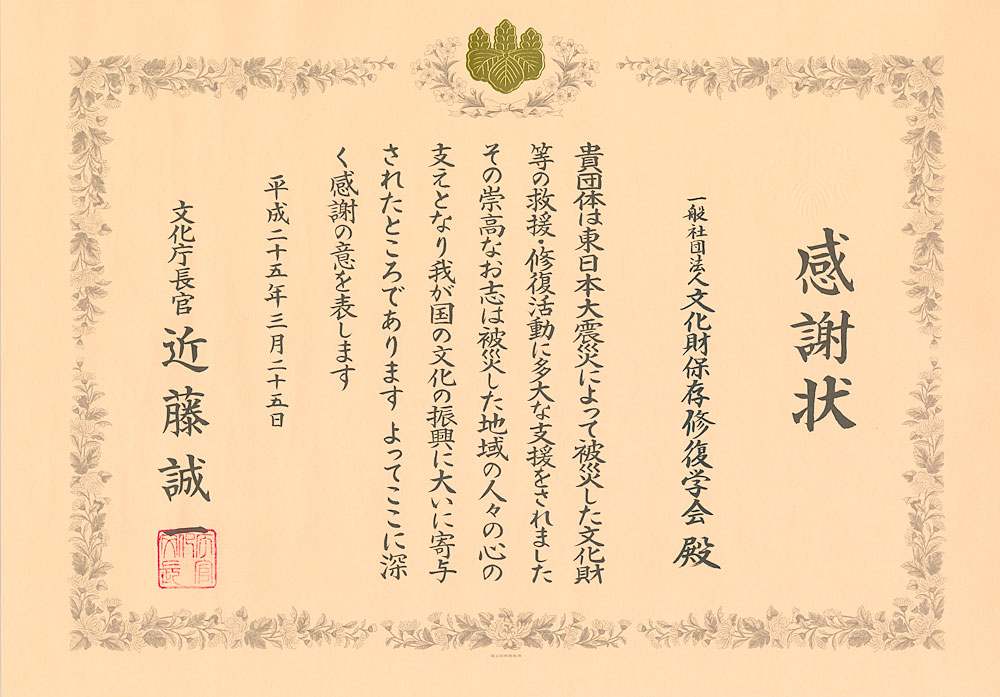 感謝状
一般社団法人文化財保存修復学会 殿
貴団体は東日本大震災によって被災した文化財
等の救援・修復活動に多大な支援をされました
その崇高なお志は被災した地域の人々の心の
支えとなり我が国の文化の振興に大いに寄与
されたところであります よってここに深
く感謝の意を表します
平成二十五年三月二十五日
文化庁長官 近藤誠一